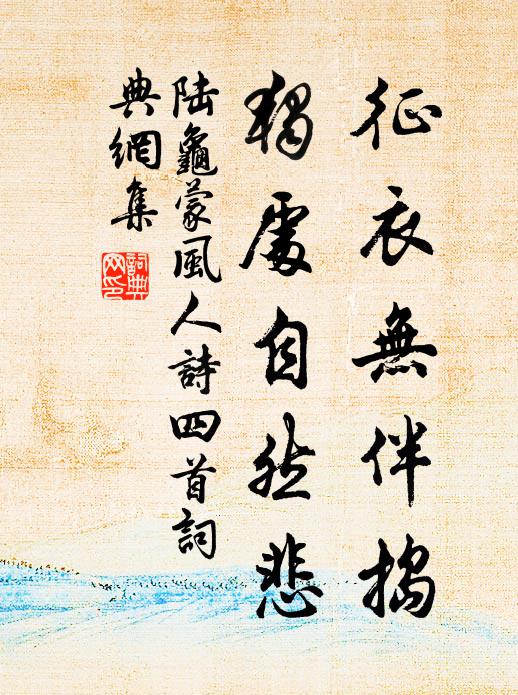 征衣無伴搗
獨處自然悲
陸龜蒙風人詩四首詞
典網集
詞典
网印